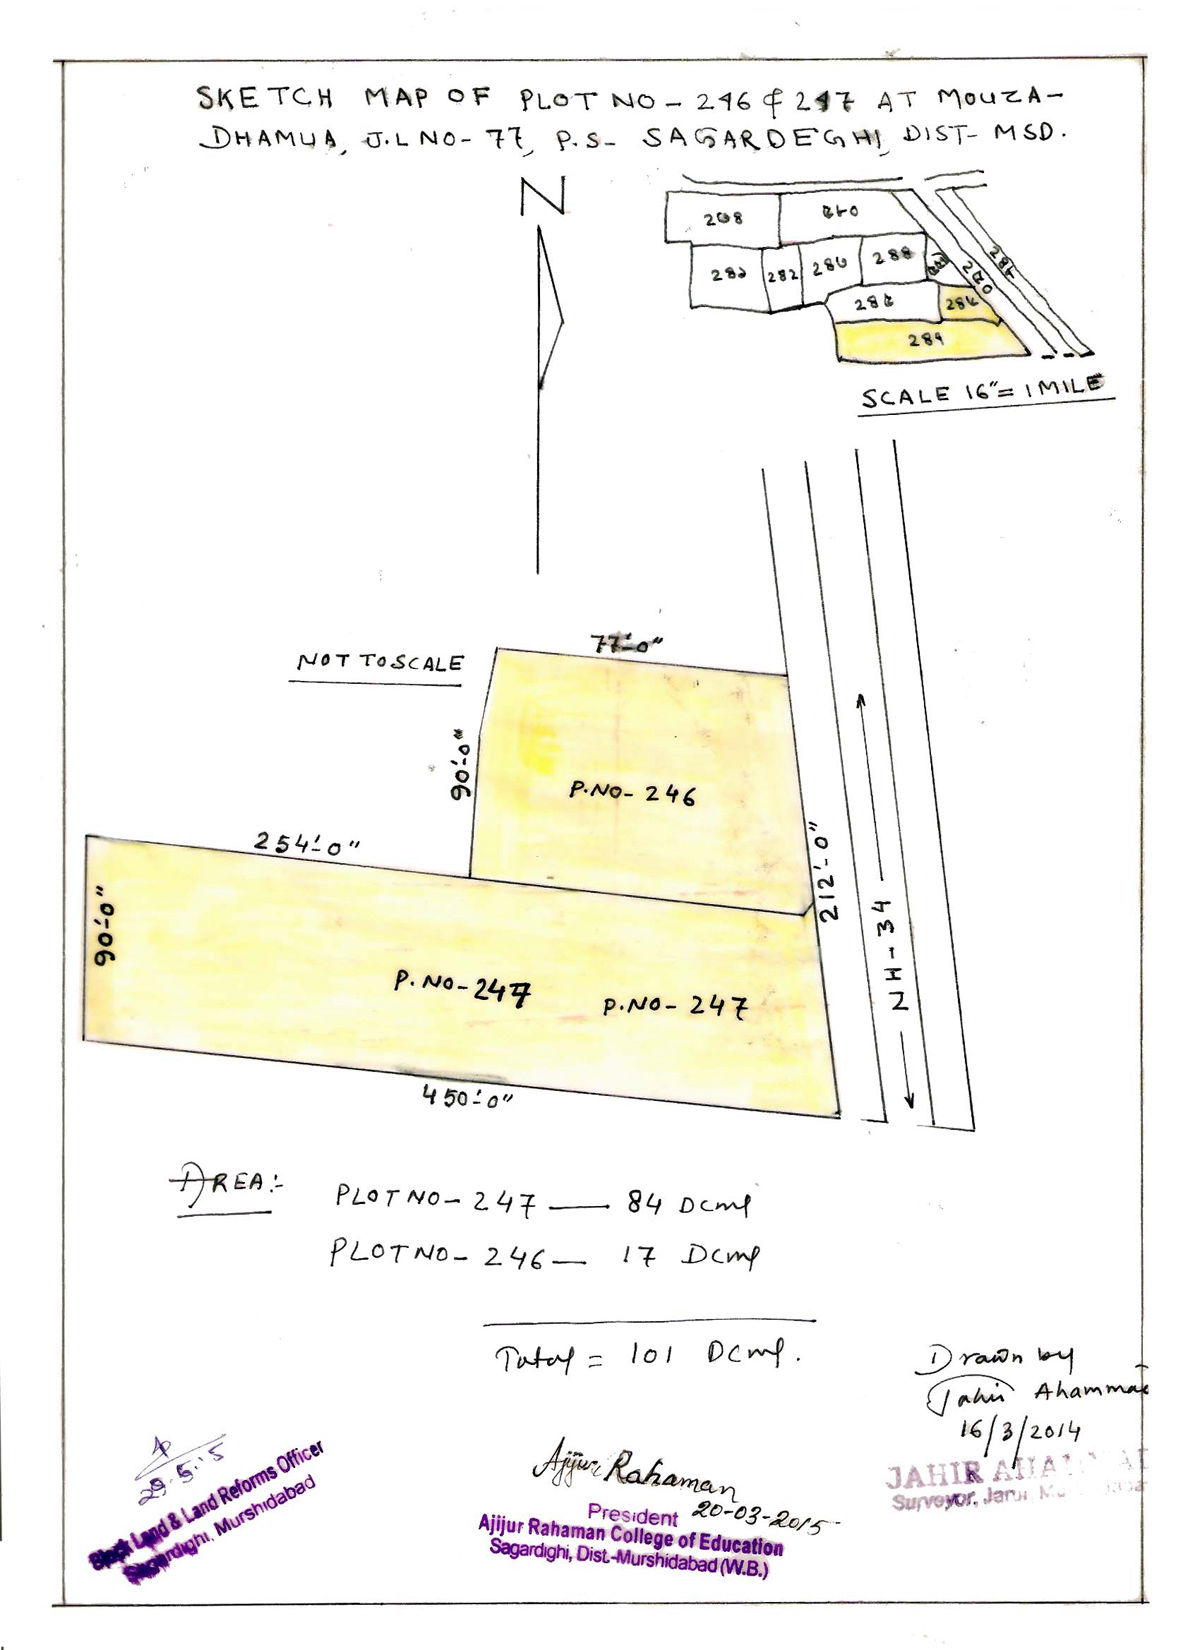 SKETCH MAP OF PLOT NO - 246 & 247 AT MOUZA-
DHAMUA, J.L NO- 77, P.S- SAGARDEGHI, DIST- MSD.
N
268
282
288
289
SCALE 16"= 1 MILE
NOT TO SCALE
77'-0"
90'-0"
P.NO- 246
254'-0"
212'-0"
90'-0"
P.NO-247
P.NO- 247
NH-34
450'-0"
AREA:-
PLOT NO- 247 — 84 Dcml
PLOT NO- 246 — 17 Dcml
Total = 101 Dcml.
Drawn by
Jahir Ahammad
16/3/2014
JAHIR
Surveyor,
29.5.15
Block Land & Land Reforms Officer
Sagardighi, Murshidabad
Ajijur Rahaman
20-03-2015
President
Ajijur Rahaman College of Education
Sagardighi, Dist.-Murshidabad (W.B.)